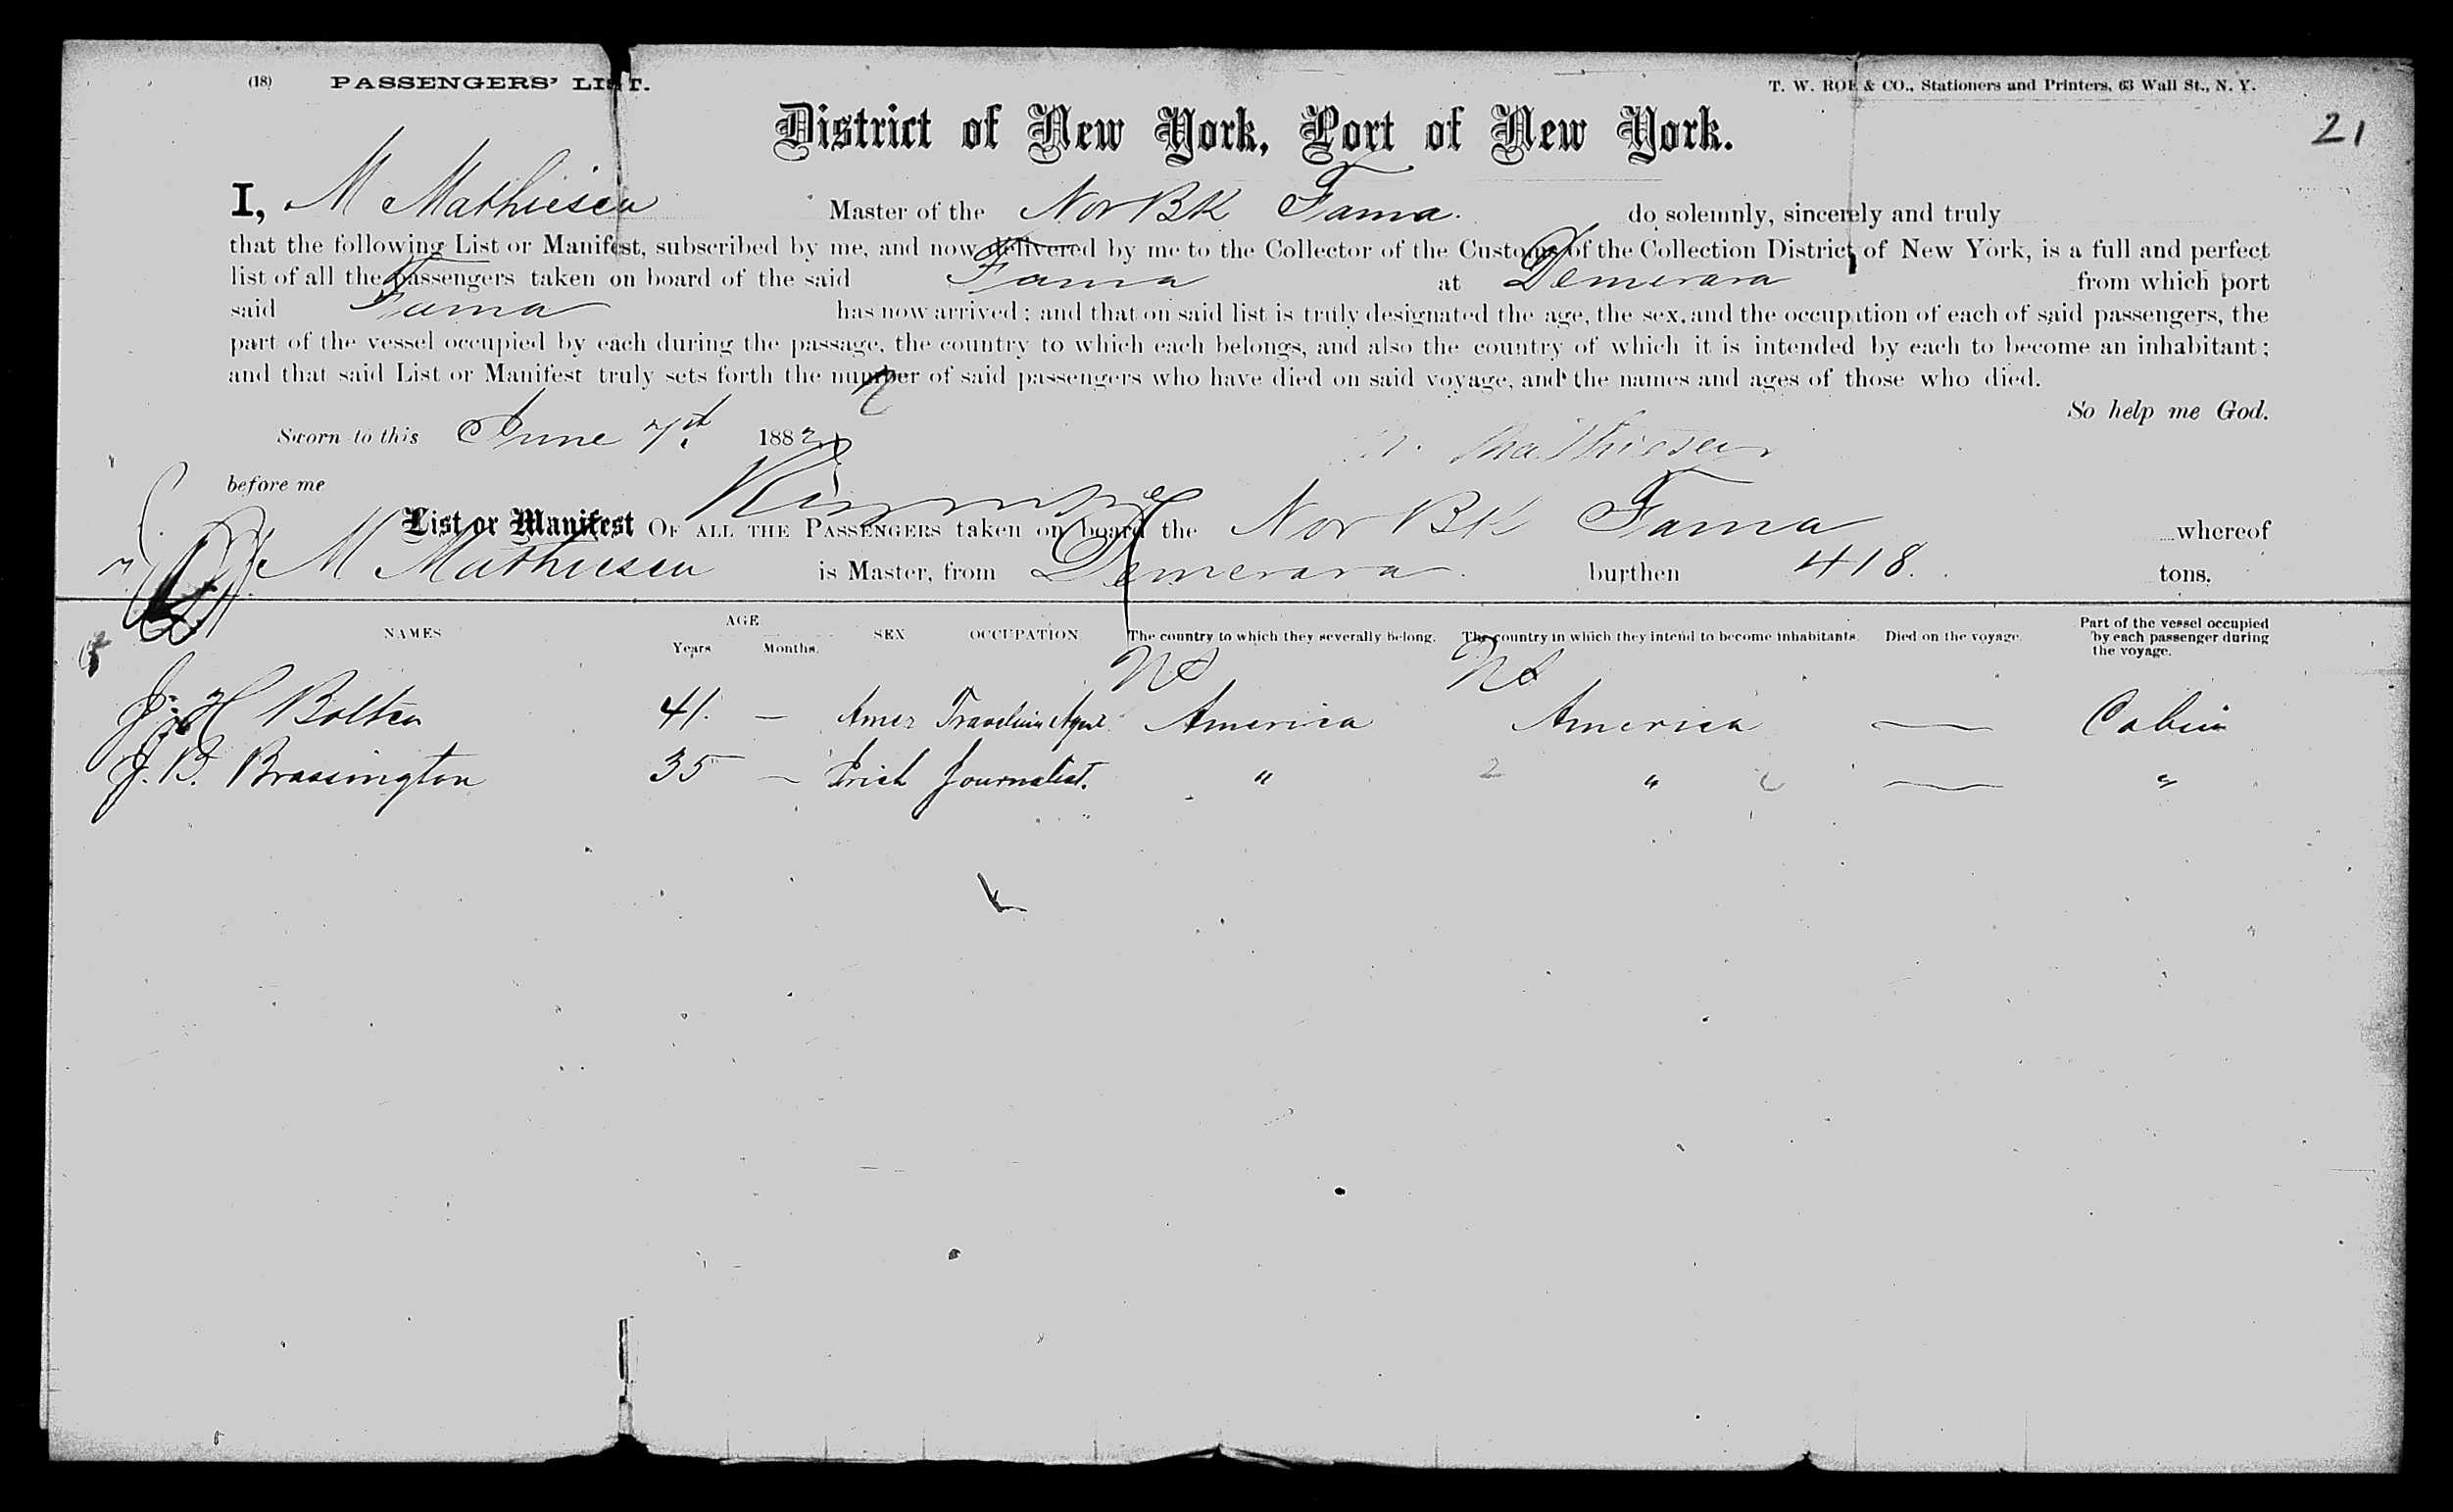 (18) PASSENGERS' LIST. T. W. ROE & CO., Stationers and Printers, 63 Wall St., N. Y.
21
District of New York, Port of New York.
I, M Mathiesen Master of the Nor BK Fama. do solemnly, sincerely and truly
that the following List or Manifest, subscribed by me, and now delivered by me to the Collector of the Customs of the Collection District of New York, is a full and perfect
list of all the Passengers taken on board of the said Fama at Demerara from which port
said Fama has now arrived; and that on said list is truly designated the age, the sex, and the occupation of each of said passengers, the
part of the vessel occupied by each during the passage, the country to which each belongs, and also the country of which it is intended by each to become an inhabitant;
and that said List or Manifest truly sets forth the number of said passengers who have died on said voyage, and the names and ages of those who died.
So help me God.
Sworn to this June 7th 188 M. Mathiesen
before me
List or Manifest OF ALL THE PASSENGERS taken on board the Nor BK Fama whereof
M Mathiesen is Master, from Demerara. burthen 418. tons.
NAMES AGE Years Months. SEX OCCUPATION The country to which they severally belong. The country in which they intend to become inhabitants. Died on the voyage. Part of the vessel occupied by each passenger during the voyage.
J. H Bolten 41. — Amer Traveling Agent America America — Cabin
J. B. Brassington 35 — Irish Journalist. " 2 " — "